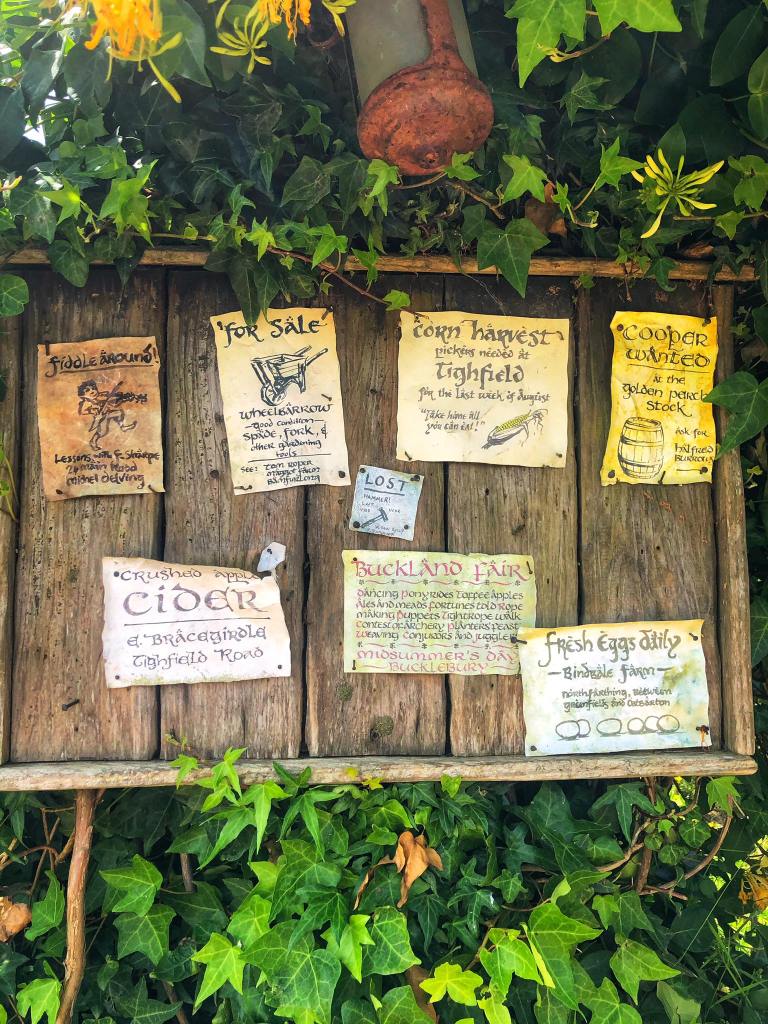 fiddle Around!
Lessons with F. Sharpe
24 main Road
michel Delving
for Sale
wheelbarrow
good condition
spade, fork, &
other gardening
tools
see: Tom Roper
maggot farm
Bamfurlong
corn harvest
pickers needed at
Tighfield
for the last week of august
"Take home all
you can eat!"
cooper
wanted
at the
golden perch
stock
ask for
halfred
Burrow
LOST
HAMMER!
LAST
USED
NEAR
crushed apple
cider
E. Bracegirdle
Tighfield Road
Buckland fair
dancing pony rides toffee apples
Ales and meads fortunes told rope
making puppets tightrope walk
contest of archery planters feast
weaving conjuors and juggle
midsummer's day
Bucklebury
fresh Eggs daily
Bindbale farm
northfarthing, between
greenfields and oatbarton